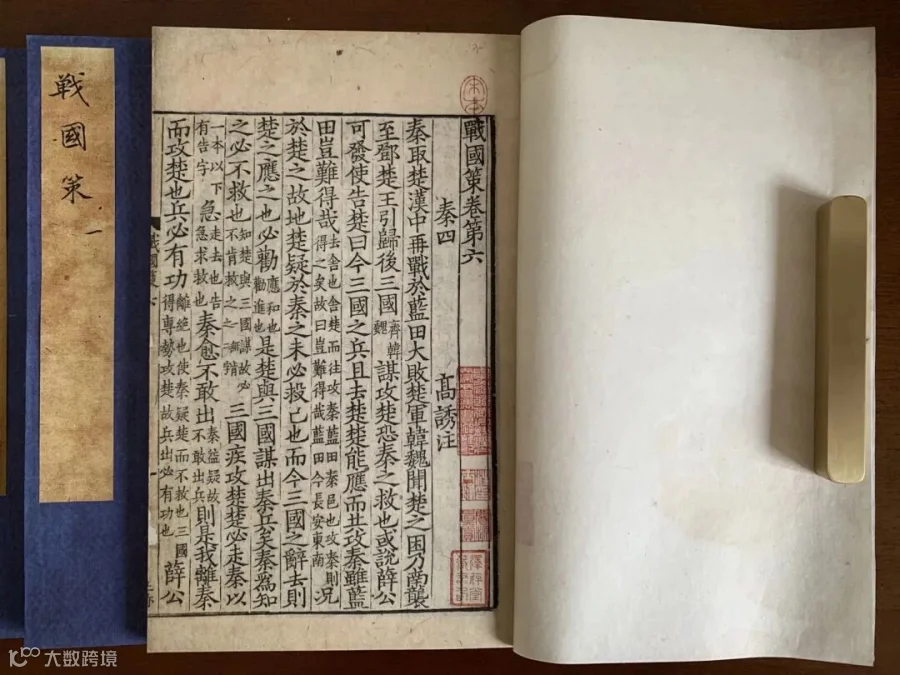 戰國策卷第六
秦四　高誘注
秦取楚漢中再戰於藍田大敗楚軍韓魏聞楚之困乃南襲
至鄧楚王引歸後三國齊韓魏謀攻楚恐秦之救也或說薛公
可發使告楚曰今三國之兵且去楚楚能應而共攻秦雖藍
田豈難得哉去舍也舍楚而往攻秦藍田秦邑也攻秦則得之矣故曰豈難得哉藍田今長安東南況
於楚之故地楚疑於秦之未必救己也而今三國之辭去則
楚之應之也必勸應和也勸進也是楚與三國謀出秦兵矣秦為知
之必不救也知楚與三國謀故必不肯救之三國疾攻楚楚必走秦以
一本以下有告字急走去也告急求救也秦愈不敢出秦益疑故不敢出兵則是我離秦
而攻楚也兵必有功離絕也使秦疑楚而不救也三國得專勢攻楚故兵出必有功也薛公
戰國策六
宋本
戦國策 一
大数跨境